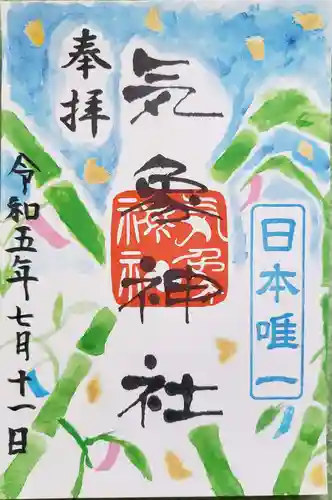 奉拝
気象神社
気象神社
日本唯一
令和五年七月十一日